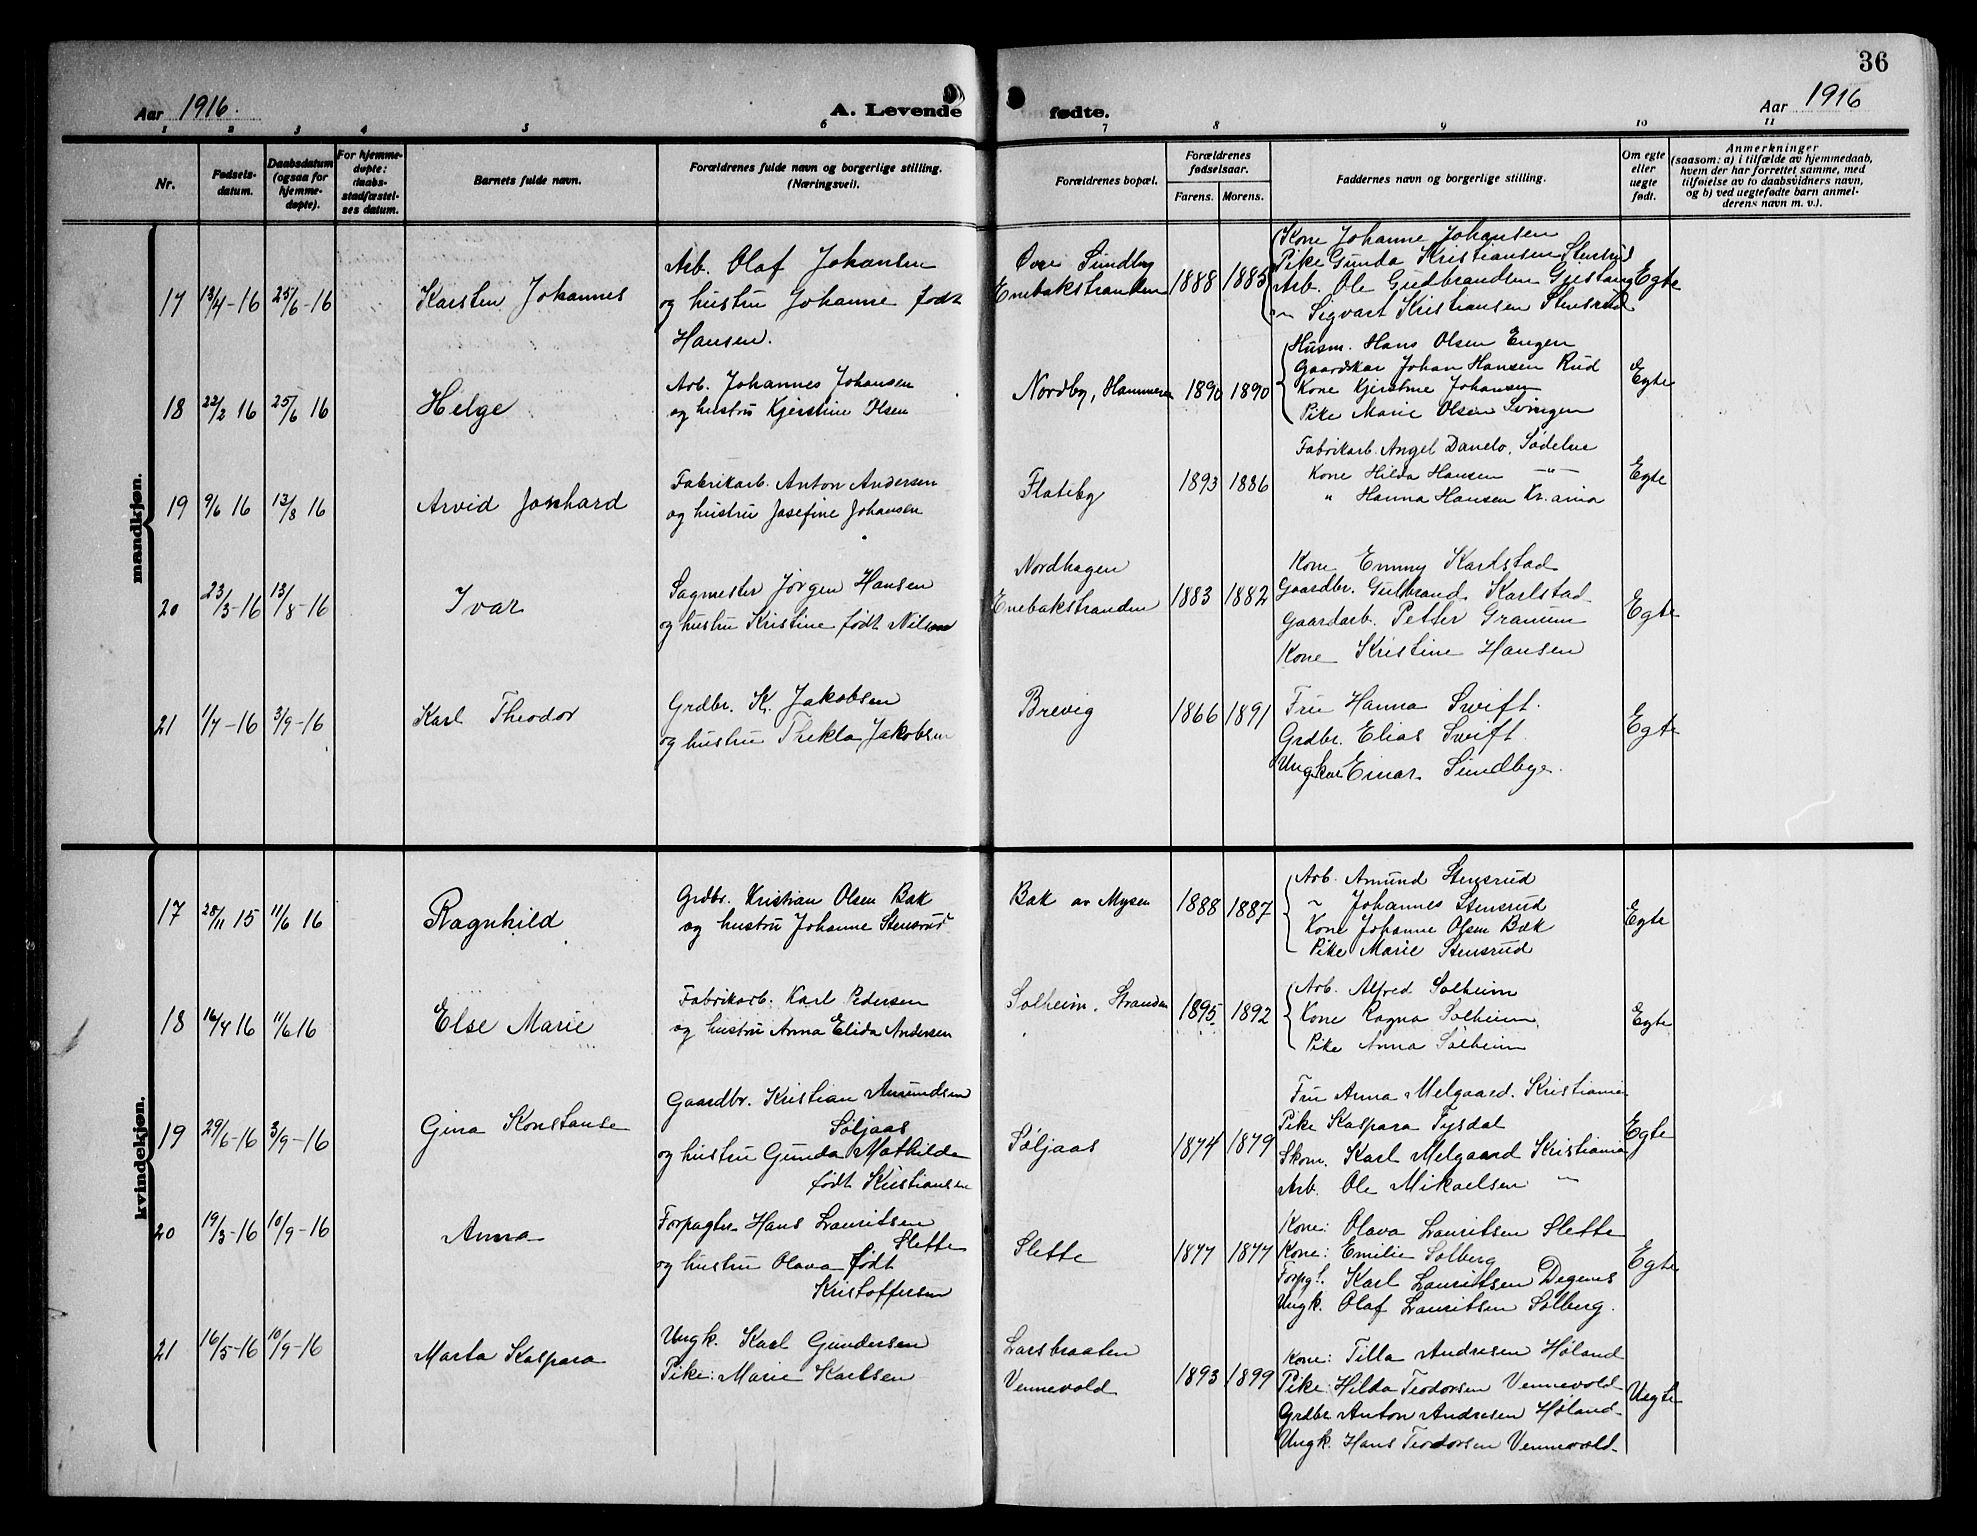 36
Aar 1916.
A. Levende fødte.
Aar 1916
1 2 3 4 5 6 7 8 9 10 11
Nr.
Fødsels-
datum.
Daabsdatum
(ogsaa for
hjemme-
døpte).
For hjemme-
døpte:
daabs-
stadfæstel-
ses datum.
Barnets fulde navn.
Forældrenes fulde navn og borgerlige stilling.
(Næringsvei).
Forældrenes bopæl.
Forældrenes
fødselsaar.
Farens. Morens.
Faddernes navn og borgerlige stilling.
Om egte
eller
uegte
født.
Anmerkninger
(saasom: a) i tilfælde av hjemmedaab,
hvem der har forrettet samme, med
tilføielse av to daabsvidners navn,
og b) ved uegtefødte barn anmel-
derens navn m. v.).
mandkjøn.
17 13/4-16 25/6-16 Karsten Johannes
Arb. Olaf Johansen
og hustru Johanne født
Hansen.
Øvre Sundby
Enebakstranden 1888 1885
Kone Johanne Johansen
Pike Gunda Kristiansen Stensrud
Arb. Ole Gudbrandsen
" Sigvart Kristiansen Stensrud
Egte
18 22/2 16 25/6 16 Helge
Arb. Johannes Johansen
og hustru Kjerstine Olsen
Nordby, Hammeren 1890 1890
Husm. Hans Olsen Engen
Gaardskar Johan Hansen Rud
Kone Kjerstine Johansen
Pike Marie Olsen Svingen
Egte
19 9/6 16 13/8 16 Arvid Jonhard
Fabrikarb. Anton Andersen
og hustru Josefine Johansen
Flateby 1893 1886
Fabrikarb. Angel Danelo, Sødelve
Kone Hilda Hansen -"-
" Hanna Hansen Kr.ania
Egte
20 23/3-16 13/8-16 Ivar
Sagmester Jørgen Hansen
og hustru Kristine født Nilsen
Nordhagen
Enebakstranden 1883 1882
Kone Emmy Karlstad
Gaardbr. Gulbrand Karlstad
Gaardarb. Petter Granum
Kone Kristine Hansen
Egte
21 1/7-16 3/9-16 Karl Theodor
Grdbr. K. Jakobsen
og hustru Thekla Jakobsen
Brevig 1866 1891
Fru Hanna Swift.
Grdbr. Elias Swift.
Ungkar Einar Sundbye.
Egte
kvindekjøn.
17 28/11 15 11/6 16 Ragnhild
Grdbr. Kristian Olsen Bak
og hustru Johanne Stensrud
Bak av Mysen 1888 1887
Arb. Amund Stensrud
" Johannes Stensrud
Kone Johanne Olsen Bak
Pike Marie Stensrud
Egte
18 16/4 16 11/6 16 Else Marie
Fabrikarb. Karl Pedersen
og hustru Anna Elida Andersen
Solheim, Stranden 1895 1892
Arb. Alfred Solheim
Kone Ragna Solheim
Pike Anna Solheim
Egte
19 29/6-16 3/9-16 Gina Konstanse
Gaardbr. Kristian Amundsen
Søljaas
og hustru Gunda Mathilde
født Kristiansen
Søljaas 1874 1879
Fru Anna Melgaard. Kristiania
Pike Kaspara Tysdal
Skom. Karl Melgaard Kristiania
Arb. Ole Mikaelsen "
Egte
20 19/3-16 10/9-16 Anna
Forpagter Hans Lauritsen
Slette
og hustru Olava født
Kristoffersen
Slette 1877 1877
Kone: Olava Lauritsen Slette
Kone: Emilie Solberg
Forpgt. Karl Lauritsen Degenes
Ungk. Olaf Lauritsen Solberg.
Egte
21 16/5-16 10/9-16 Marta Kaspara
Ungk. Karl Gundersen
Pike: Marie Karlsen
Larsbraaten
Vennevold 1893 1899
Kone: Tilla Andresen Høland
Pike: Hilda Teodorsen Vennevold
Grdbr. Anton Andresen Høland
Ungk. Hans Teodorsen Vennevold
Uegte